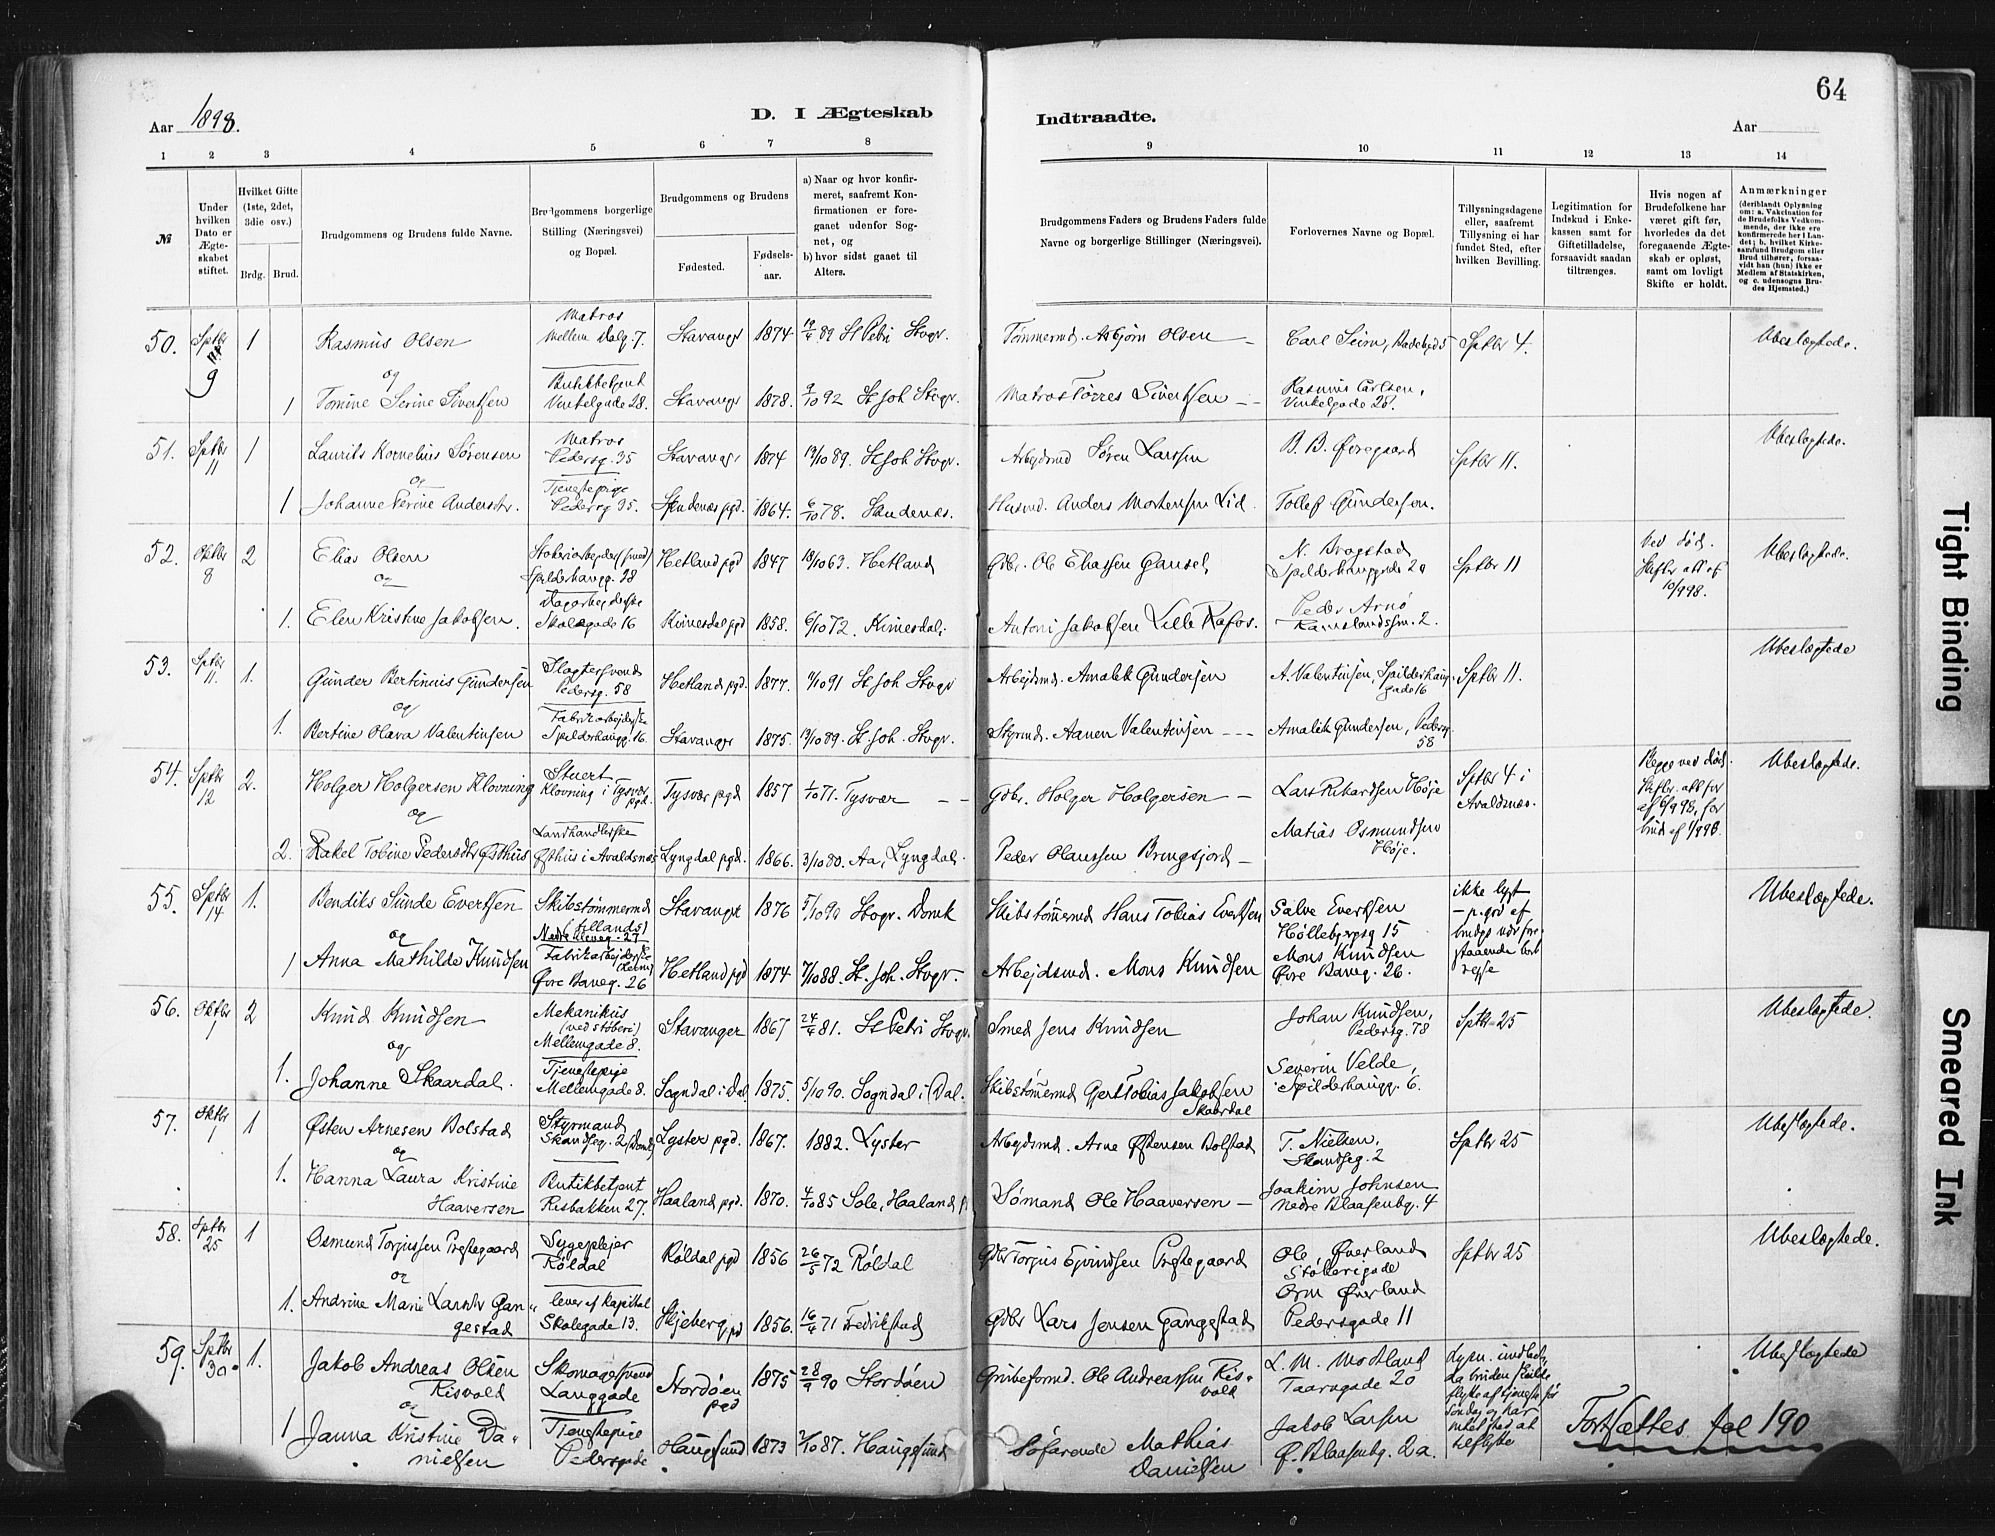 64
Aar 1898.
D. I Ægteskab
Indtraadte.
Aar
1 2 3 4 5 6 7 8 9 10 11 12 13 14
№
Under hvilken Dato er Ægteskabet stiftet.
Hvilket Gifte (1ste, 2det, 3die osv.)
Brdg. Brud.
Brudgommens og Brudens fulde Navne.
Brudgommens borgerlige Stilling (Næringsvei) og Bopæl.
Brudgommens og Brudens
Fødested.
Fødselsaar.
a) Naar og hvor konfirmeret, saafremt Konfirmationen er foregaaet udenfor Sognet, og
b) hvor sidst gaaet til Alters.
Brudgommens Faders og Brudens Faders fulde Navne og borgerlige Stillinger (Næringsvei).
Forlovernes Navne og Bopæl.
Tillysningsdagene eller, saafremt Tillysning ei har fundet Sted, efter hvilken Bevilling.
Legitimation for Indskud i Enkekassen samt for Giftetilladelse, forsaavidt saadan tiltrænges.
Hvis nogen af Brudefolkene har været gift før, hvorledes da det foregaaende Ægteskab er opløst, samt om lovligt Skifte er holdt.
Anmærkninger (deriblandt Oplysning om: a. Vakcination for de Brudefolks Vedkommende, der ikke ere konfirmerede her i Landet; b. hvilket Kirkesamfund Brudgom eller Brud tilhører, forsaavidt han (hun) ikke er Medlem af Statskirken, og c. udensogns Brudes Hjemsted.)
50. Sptbr 9 1 Rasmus Olsen Matros Mellem Dalg. 7. Stavanger 1874 19/4 89 St Petri Stvgr. Tømmermd. Asbjørn Olsen Carl Seim, Sptbr 4. Ubeslægtede.
og
1 Tomine Serine Sivertsen Butikbetjent Vinkelgade 28. Stavanger 1878. 9/10 92 St Joh Stvgr. Matros Tørres Sivertsen Rasmus Carlsen, Vinkelgade 28.
51. Sptbr 11 1 Laurits Kornelius Sørensen Matros Pedersg. 35 Stavanger 1874 13/10 89. St Joh Stvgr. Arbejdsmd Søren Larssen B. B. Øvregaard Sptbr 11. Ubeslægtede.
og
1 Johanne Serine Andersdtr. Tjenstepige Pedersg 35. 1864. 6/10 78. Sandenæs. Husmd. Anders Mortensen Lid. Tollef Gundersen.
52. Oktbr 8 2 Elias Olsen Støberiarbejder (smed) Spilderhaugg. 28 Hetland pgd 1847 18/10 63 Hetland Gdbr. Ole Eliassen Gausel N. Bragstad Spilderhauggade 2a Sptbr 11 Ved død. Skiftr. att. af 10/9 98. Ubeslægtede.
og
1. Elen Kristine Jakobsen. Dagarbejderske Skolegade 16 Kvinesdal pgd 1858. 6/10 72. Kvinesdal. Antoni Jakobsen Lille Rafos. Peder Arnø 2.
53. Sptbr 11. 1. Gunder Bertinius Gundersen Slagtersvend Pedersg. 58 Hetland pgd. 1877. 11/10 91 St Joh Stvgr Arbejdsmd. Amalek Gundersen A. Valentinsen, Spilderhauggade 16 Sptbr 11. Ubeslægtede
og
1. Bertine Olava Valentinsen Fabrikarbejderske Spilderhaugg. 16. Stavanger 1875. 13/10 89. St Joh. Stvgr. Styrmd. Aanen Valentinsen Amalek Gundersen, Pedersg. 58
54. Sptbr 12 2. Holger Holgersen Kløvning Stuert Kløvning i Tysvær pgd. Tysvær pgd 1857 1/10 71. Tysvær Gdbr. Holger Holgersen Lars Rikardsen Høje Sptbr 4 i Avaldsnæs. Begge ved død. Skiftr. att. for af 6/9 98, for brud af 1/9 98. Ubeslægtede.
og
2. Rakel Tobine Pedersdtr Østhus Landhandlerske Østhus i Avaldsnæs Lyngdal pgd. 1866. 3/10 80. Aa, Lyngdal. Peder Olaussen Bringsjord Matias Osmundsen Høje.
55. Sptbr 14 1. Bendiks Sunde Evertsen Skibstømmermd Stavanger 1876 5/10 90 Stvgr. Domk Skibstømmermd Hans Tobias Evertsen Salve Evertsen 15 ikke lyst Ubeslægtede.
og
1 Anna Mathilde Knudsen Fabrikarbejderske Øvre Baneg. 26 Hetland pgd 1874 7/10 88 St. Joh. Stvgr. Arbejdsmd. Mons Knudsen Mons Knudsen Øvre Baneg. 26.
56. Oktbr 1 2 Knud Knudsen Mekanikus (ved støberi) Mellemgade 8. Stavanger 1867 24/4 81. St Petri Stvgr. Smed Jens Knudsen Johan Knudsen, Pedersg. 78 Sptbr 25 Ubeslægtede.
og
1. Johanne Skaardal. Tjenstepige Mellemgade 8. Sogndal i Dal. 1875. 5/10 90. Sogndal i Dal. Skibstømmermd Gjert Tobias Jakobsen Skaardal Severin Velde, Spilderhaugg. 6.
57. Oktbr 1 1 Østen Arnesen Bolstad Styrmand Skandseg. 2 Lyster pgd. 1867. 1882. Lyster Arbejdsmd. Arne Østensen Bolstad T. Nielsen, Skandseg. 2 Sptbr 25 Ubeslægtede.
og
1. Hanna Laura Kristine Haaversen Butikbetjent Risbakken 27. Haaland pgd. 1870. 4/10 85 Sole, Haaland Sømand Ole Haaversen Joakim Johnsen Nedre Blaasenbg. 4
58. Sptbr 25 1 Osmund Torjussen Prestegaard Sygeplejer Røldal Røldal pgd 1856 26/5 72 Røldal Gdbr Torjus Ejvindsen Prestegaard Ole Øverland Støberigade Sptbr 25 Ubeslægtede.
og
1. Andrine Marie Larsdtr Gangestad lever af kapital Skolegade 13. Skjeberg pgd 1856. 16/4 71 Fredrikstad Gdbr Lars Jensen Gangestad Orm Øverland Pedersgade 11
59. Sptbr 30 1. Jakob Andreas Olsen Risvold Skomagersvend Langgade Stordøen pgd 1875 28/9 90 Stordøen Grubeformd. Ole Andreassen Risvold L. M. Mostland Taarngade 20 Ubeslægtede
og
1 Janna Kristine Danielsen Tjenstepige Pedersgade Haugesund 1873 2/10 87. Haugesund Søfarende Mathias Danielsen Jakob Larsen Ø. Blaasenbg. 2a.
Fortsættes fol 190
Tight Binding
Smeared Ink